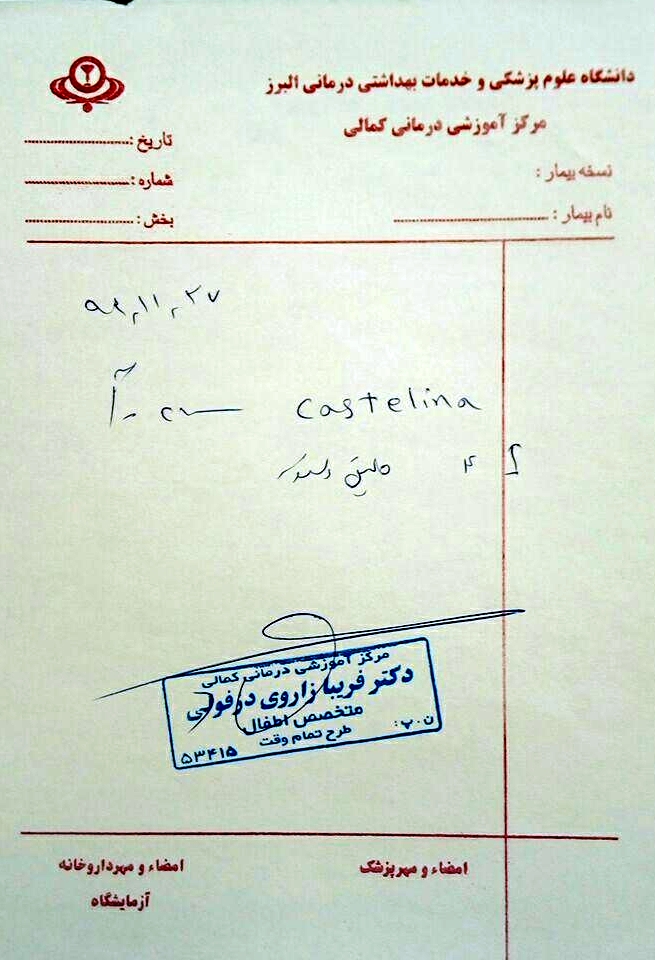 دانشگاه علوم پزشکی و خدمات بهداشتی درمانی البرز
مرکز آموزشی درمانی کمالی
نسخه بیمار :
نام بیمار :
تاریخ :
شماره :
بخش :
۹۳,۱۱,۲۷
Castelina
مرکز آموزشی درمانی کمالی
دکتر فریبا زاروی دزفولی
متخصص اطفال
طرح تمام وقت
ن.پ:
۵۳۴۱۵
امضاء و مهر پزشک
امضاء و مهر داروخانه
آزمایشگاه